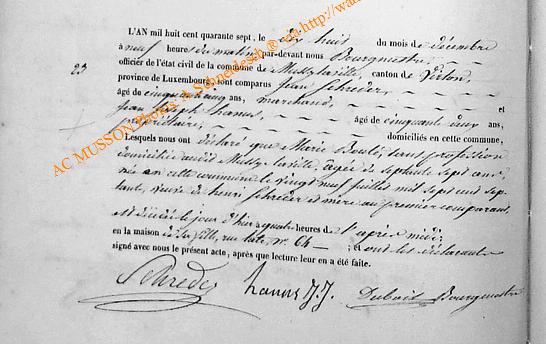 L'AN mil huit cent quarante sept, le dix huit du mois de décembre
à neuf heures du matin, par-devant nous Bourgmestre,
officier de l'état civil de la commune de Mussy la ville, canton de Virton,
23
province de Luxembourg, sont comparus jean Schréder,
âgé de cinquante cinq ans, marchand, et
jean joseph hanus, âgé de cinquante deux ans,
propriétaire, domiciliés en cette commune,
Lesquels nous ont déclaré que Marie Boulé, sans profession
domiciliée audit Mussy la ville, agée de septante sept ans,
née en cette commune le vingt neuf juillet mil sept cent sep
tant, veuve de henri Schréder et mère au premier comparant,
est décédée le jour d'hier quatre heures de l'après midi,
en la maison de rue n° 64 ; et ont les déclarants
signé avec nous le présent acte, après que lecture leur en a été faite.
Schreder hanus J J. Dubois Bourgmestre
AC MUSSON Photos A Schneidesch ® via http://